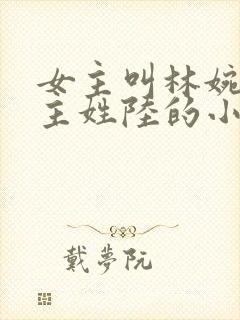 女主叫林婉
主姓陸的小
戴夢阮